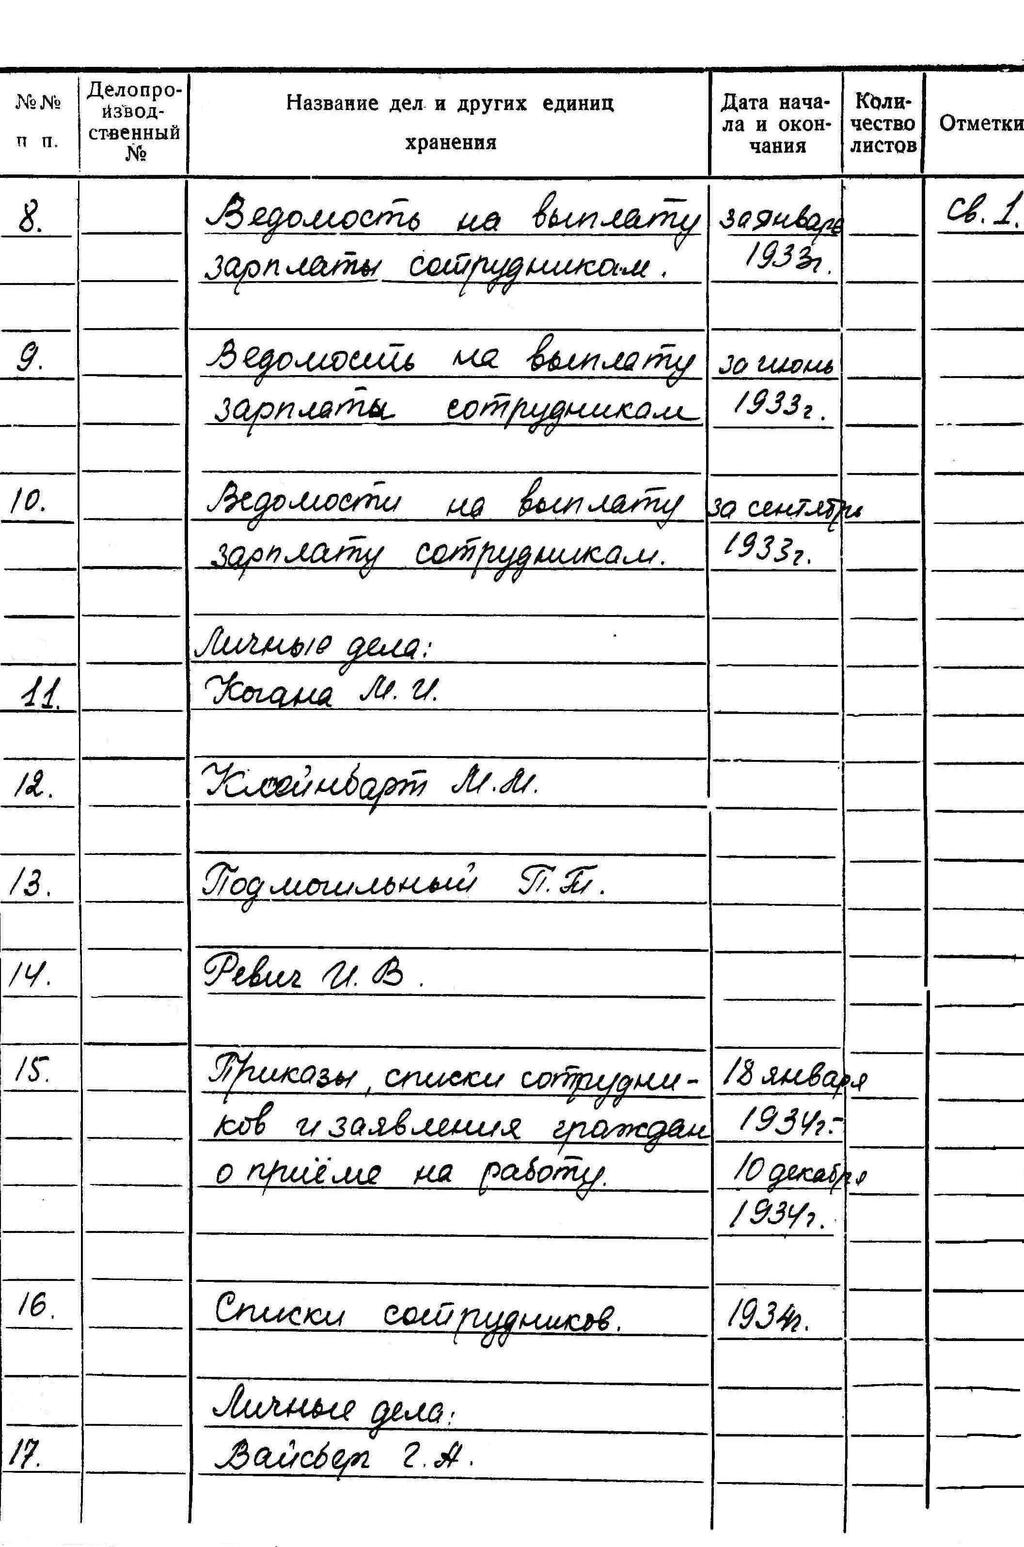 №№ п п.
Делопро-
извод-
ственный
№
Название дел и других единиц
хранения
Дата нача-
ла и окон-
чания
Коли-
чество
листов
Отметки
8. Ведомость на выплату за январь св. 1.
зарплаты сотрудникам. 1933г.
9. Ведомость на выплату за июнь
зарплаты сотрудникам 1933г.
10. Ведомости на выплату за сентябрь
зарплату сотрудникам. 1933г.
Личные дела:
11. Когана М. И.
12. Клейнбарт М. М.
13. Подмогильный П. Т.
14. Ревич И. В.
15. Приказы, списки сотрудни- 18 января
ков и заявления граждан 1934г.-
о приёме на работу. 10 декабря
1934г.
16. Списки сотрудников. 1934г.
Личные дела:
17. Вайсберг Г. А.